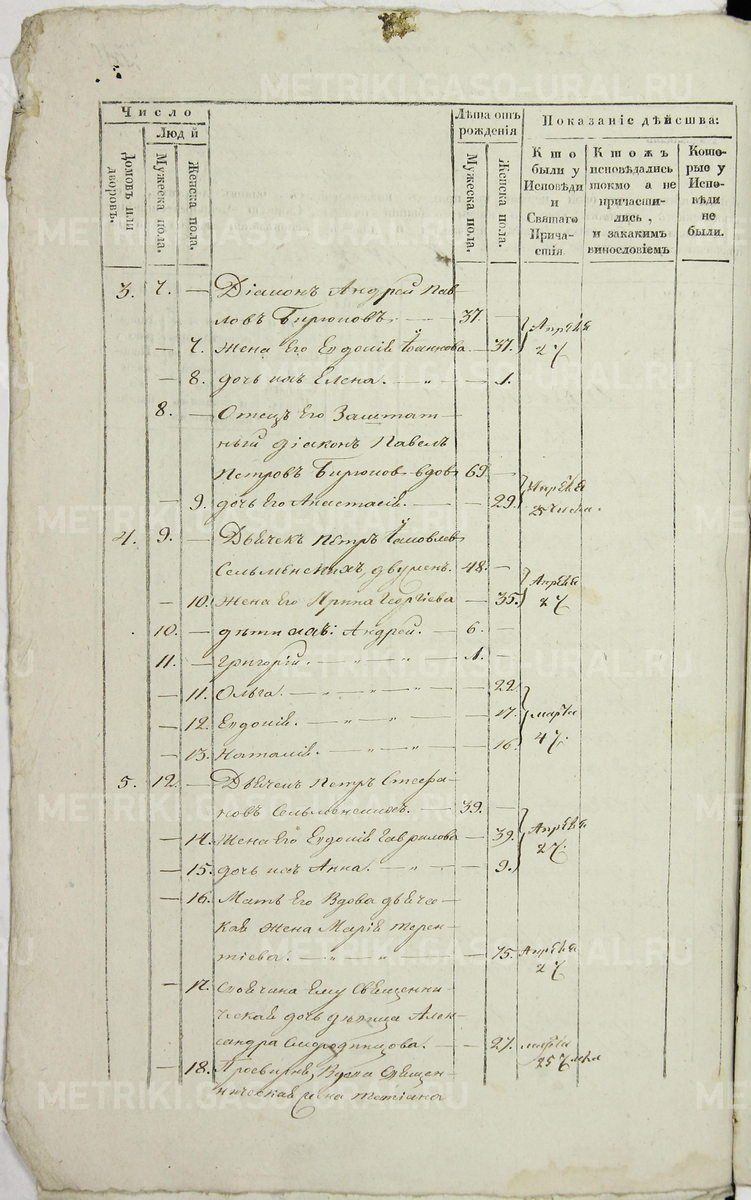 Число
Людй
Домовъ или дворовъ.
Мужеска пола.
Женска пола.
Лѣта отъ рожденія
Мужеска пола.
Женска пола.
Показаніе дѣйства:
Кто были у Исповѣди и Святаго Причастія
Ктожъ исповѣдались токмо а не причастились, и закакимъ винословіемъ
Которые у Исповѣди не были.
3. 7. — Діаконъ Андрей Пав
ловъ Бирюковъ. — 37. —
— 7. Жена Его Евдокія Іоаннова — 37. Апрѣля 27
— 8. дочь ихъ Елена. — „ — 1.
8. — Отецъ Его Заштат
ный діаконъ Павелъ
Петровъ Бирюковъ вдовъ 69 —
— 9. дочь Его Анастасія. — 29. Апрѣля 25 числа.
4. 9. — Дьячекъ Петръ Іаковлевъ
Сельменскихъ, двумен. 48. —
— 10. Жена Его Ирина Георгіева — 35. Апрѣля 27
10. — дѣти ихъ: Андрей. — 6. —
11. — Григорій. — „ — „ — 1. —
— 11. Ольга. — „ — „ — 22.
— 12. Евдокія. — „ — „ — 17. марта 47.
— 13. Наталія. — „ — „ — 16.
5. 12. — Дьячекъ Петръ Стефа
новъ Сельменскихъ. — 39. —
— 14. Жена Его Евдокія Гаврилова — 39. Апрѣля 27.
— 15. дочь ихъ Анна. — „ — 9.
— 16. Мать Его Вдова дьяче
ская жена Марія Терен
тіева. — „ — 75. Апрѣля 27
— 17. Своячина Ему Священни
ческая дочь дѣвица Алек
сандра Смородинцова. — 27. марта 25
— 18. Просвирня, Вдова Священ
ническая жена Татіана